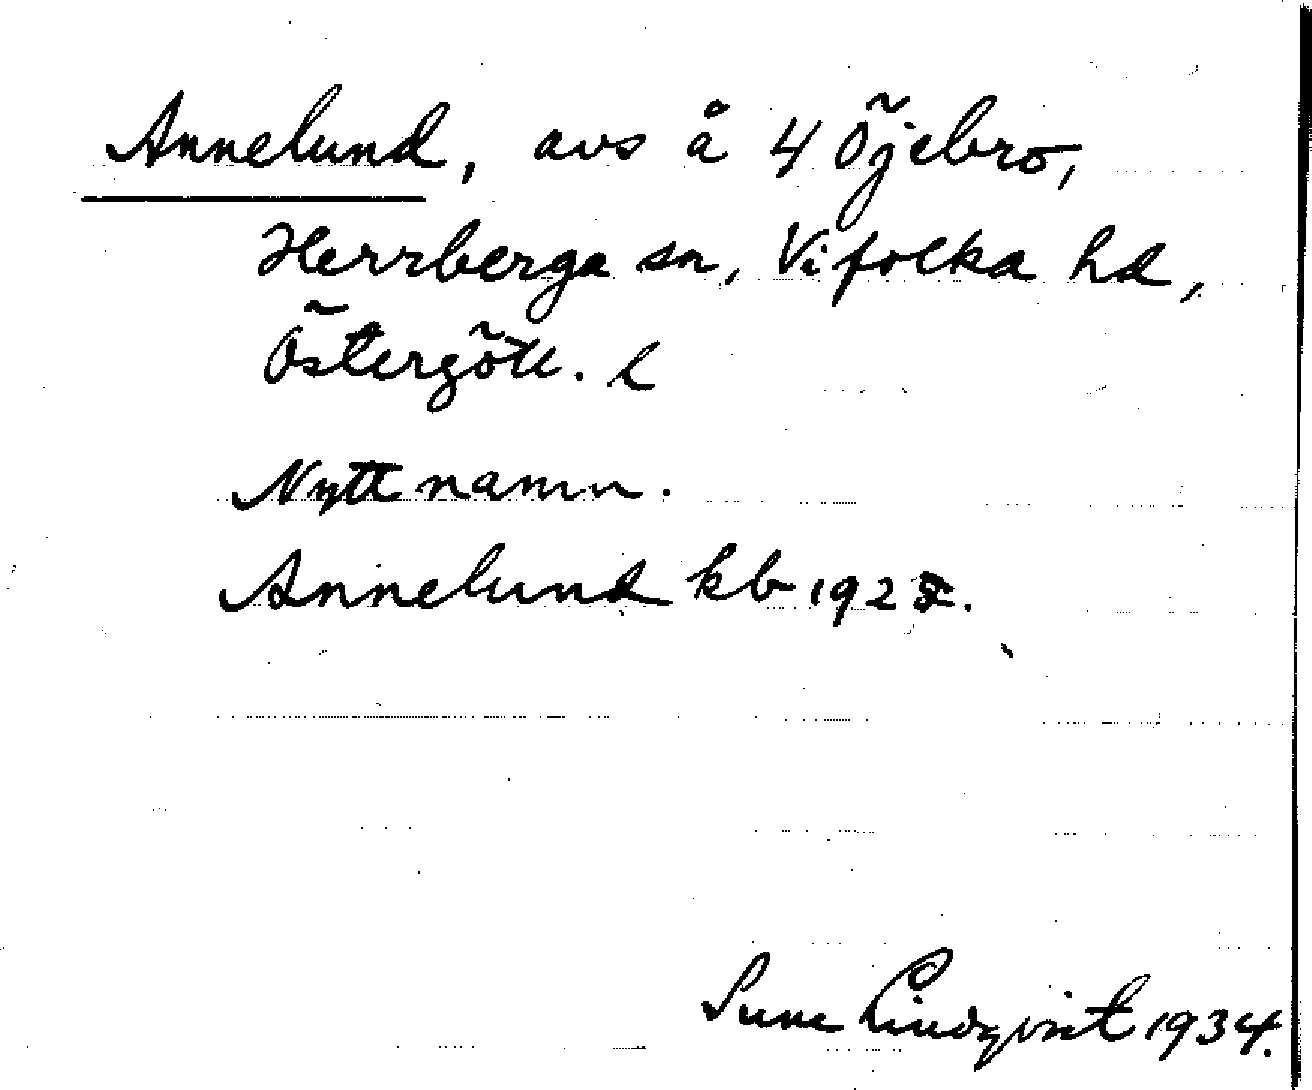 Annelund, avs å 4 Öjebro,
Herrberga sn, Vifolka hd,
Östergötl. l
Nytt namn.
Annelund kb 192
Sune Lindqvist 1934.